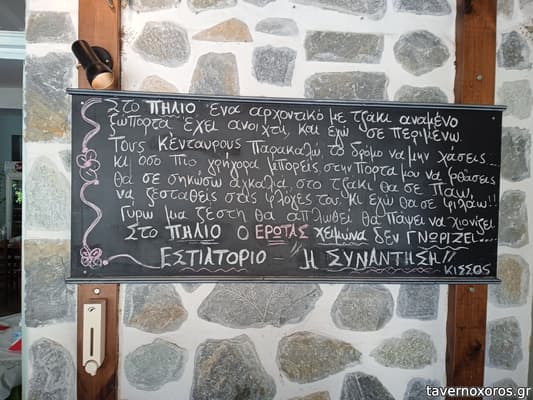 Στο ΠΗΛΙΟ ένα αρχοντικό με τζάκι αναμένο
ξωπορτα έχει ανοιχτή, και εγώ σε περιμένω.
Τους Κένταυρους Παρακαλώ, το δρόμο να μην χάσεις...
κι όσο πιο γρήγορα μπορείς, στην πόρτα μου να φθάσεις
θα σε σηκώσω αγκαλιά, στο τζάκι θα σε πάω,
να ζεσταθείς στις φλόγες του, κι εγώ θα σε φιλάω!!
Γύρω μια ζέστη θα απλωθεί θα πάψει να χιονίζει
Στο ΠΗΛΙΟ ο ΕΡΩΤΑΣ χειμώνα δεν ΓΝΩΡΙΖΕΙ....
ΕΣΤΙΑΤΟΡΙΟ - "Η ΣΥΝΑΝΤΗΣΗ"
ΚΙΣΣΟΣ
tavernoxoros.gr